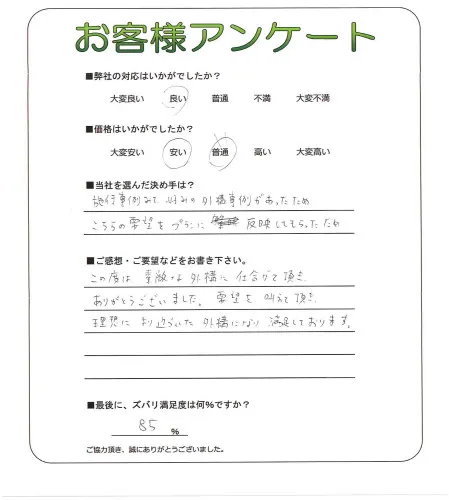 お客様アンケート
■弊社の対応はいかがでしたか？
大変良い 良い 普通 不満 大変不満
■価格はいかがでしたか？
大変安い 安い 普通 高い 大変高い
■当社を選んだ決め手は？
施行事例みて 好みの外構事例があったため
こちらの要望をプランに 反映してもらったため
■ご感想・ご要望などをお書き下さい。
この度は 素敵な外構に 仕合がて頂き
ありがとうございました。 要望を 叶えて頂き
理想に より近づいた 外構になり 満足しております。
■最後に、ズバリ満足度は何％ですか？
85 ％
ご協力頂き、誠にありがとうございました。